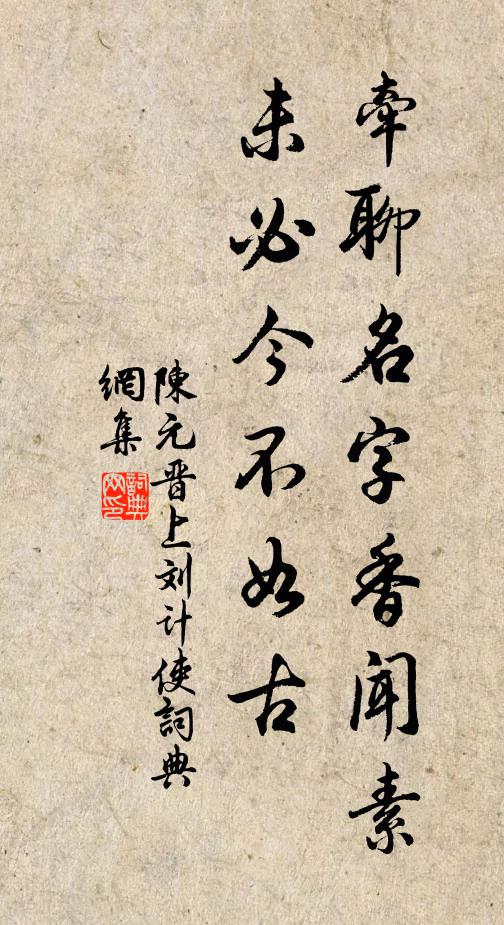 牵聊名字香闻素
未必今不如古
陳元晋上刘计使詞典
網集
詞典網印